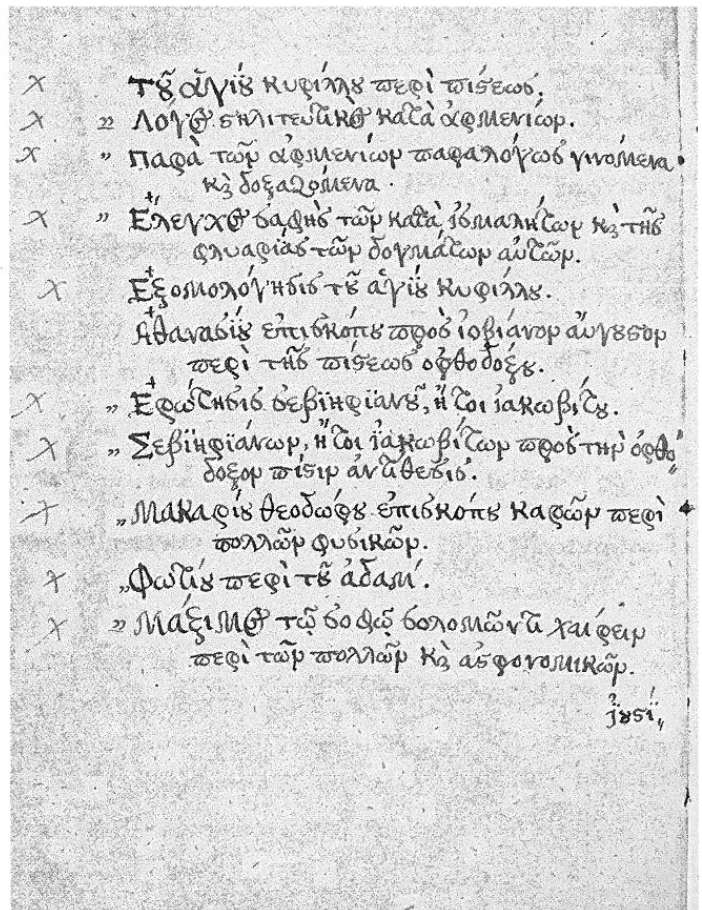 τοῦ ἁγίου κυρίλλου περὶ πίστεως.
" Λόγος στηλιτευτικὸς κατὰ ἀρμενίων.
" Παρὰ τῶν ἀρμενίων παραλόγως γινόμενα
καὶ δοξαζόμενα.
" Ἔλεγχος σαφὴς τῶν κατὰ ἰσμαλήτων καὶ τῆς
φλυαρίας τῶν δογμάτων αὐτῶν.
Ἐξομολόγησις τοῦ ἁγίου κυρίλλου.
Ἀθανασίου ἐπισκόπου πρὸς ἰοβιάνον αὔγουστον
περὶ τῆς πίστεως ὀρθοδόξου.
" Ἐρώτησις σεβϊηριανοῦ, ἤτοι ἰακωβίτου.
" Σεβϊηριάνων, ἤτοι ἰακωβίτων πρὸς τὴν ὀρθό
δοξον πίστιν ἀντίθεσις.
" Μακαρίου θεοδώρου ἐπισκόπου καρῶν περὶ
πολλῶν φυσικῶν.
" Φωτίου περὶ τοῦ ἀδαμ.
" Μάξιμος τῷ σοφῷ σολομῶντι χαίρειν
περὶ τῶν πολλῶν καὶ ἀστρονομικῶν.